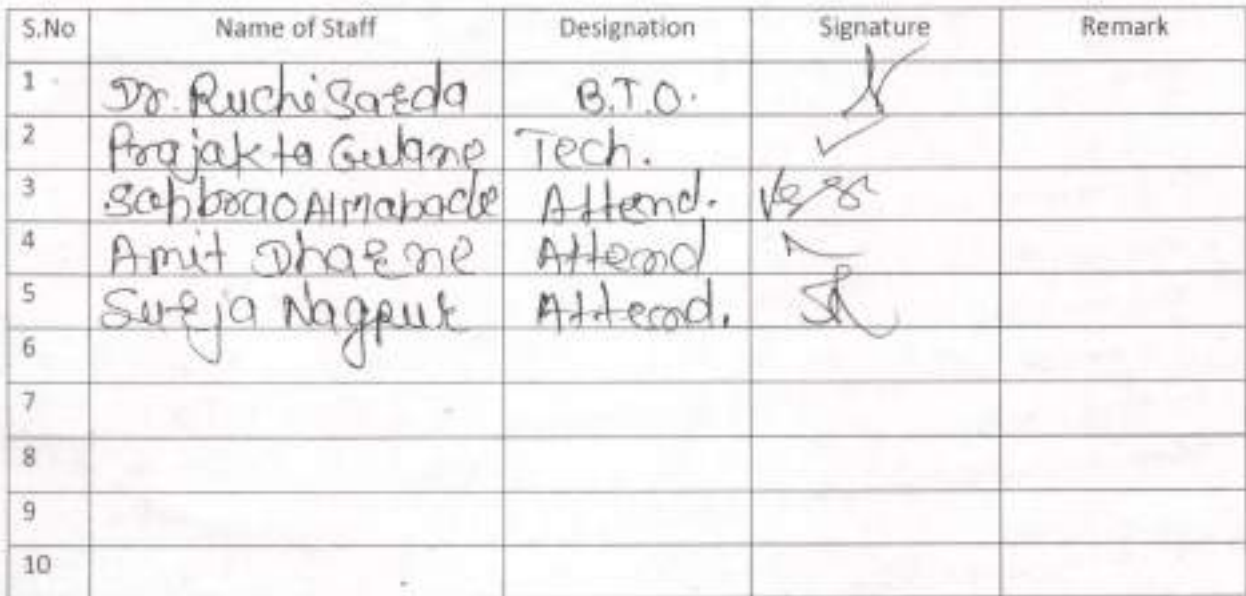 S.No Name of Staff Designation Signature Remark
1 Dr. Ruchi Sarda B.T.O.
2 Prajakta Gulane Tech.
3 Attend.
4 Amit Dharne Attend
5 Surja Nagpur Attend.
6
7
8
9
10